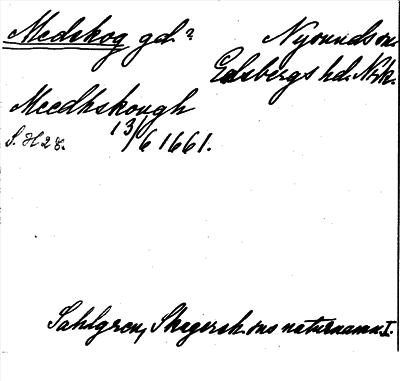 Medskog gd? Nysunds sn.
Edsbergs hd. Nrk.
Meedhskough
S. H 28. 13/6 1661.
Sahlgren, Skagersh. ons naturnamn I.